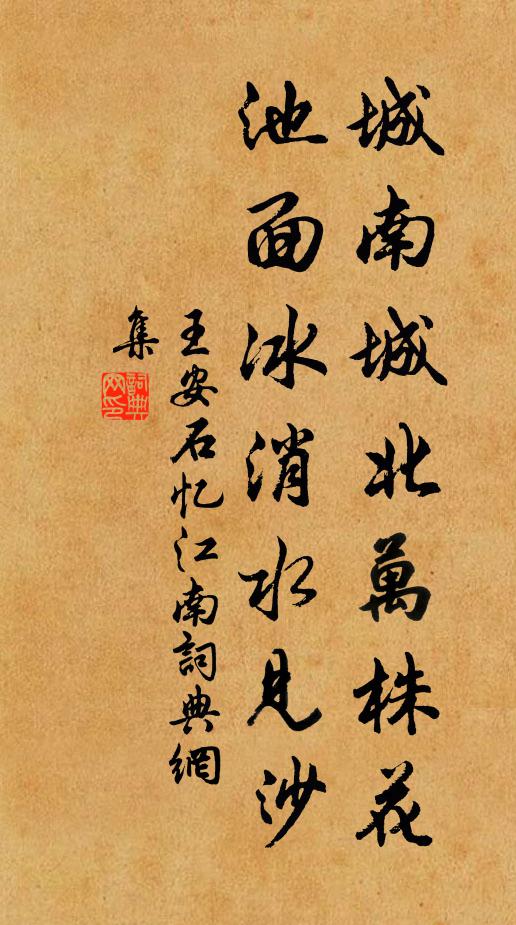 城南城北萬株花
池面冰消水見沙
王安石忆江南詞典網
集
詞典
网印